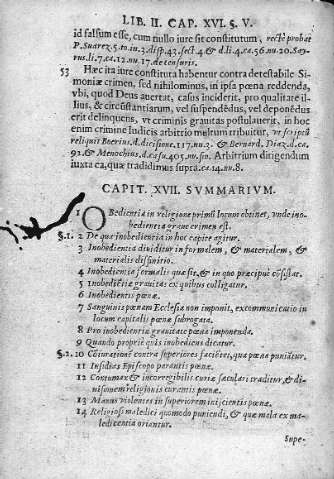 LIB. II. CAP. XVI. §. V.
id falsum esse, cum nullo iure sit constitutum, recte probat
P. Suarez. 5. to. in 3. disp. 43. sect. 4. & d. li. 4. ca. 56. nu. 20. Say-
rus li. 7. ca. 12. nu. 17. de censuris.
53 Hæc ita iure constituta habentur contra detestabile Si-
moniæ crimen, sed nihilominus, in ipsa pœna reddenda,
vbi, quod Deus auertat, casus inciderit, pro qualitate il-
lius, & circũstantiarum, vel suspendẽdus, vel deponẽdus
erit delinquens, vt criminis grauitas postulauerit, in hoc
enim crimine Iudicis arbitrio multum tribuitur, vt scriptũ
reliquit Boerius. d. decisione. 117. nu. 3. & Bernard. Diaz. d. ca.
92. & Menochius. d. casu. 405. nu. Arbitrium dirigendum
iuxta ea, quæ tradidimus supra. ca. 14. nu. 8.
CAPIT. XVII. SVMMARIVM.
1 OBedientia in religione primũ locum obtinet, vnde ino-
bedientia graue crimen est.
§. 1. 2 De qua inobedientia in hoc capite agitur.
3 Inobedientia diuiditur in formalem, & materialem, &
materialis diffinitio.
4 Inobedientia formalis quæ sit, & in quo præcipuè cõsistat.
5 Inobediẽtiæ grauitas ex quibus colligatur.
6 Inobedientis pœnæ.
7 Sanguinis pœnam Ecclesia non imponit, excommunicatio in
locum capitalis pœnæ subrogata.
8 Pro inobedientiæ grauitate pœna imponenda.
9 Quando propriè quis inobediens dicatur.
§. 2. 10 Cõiuratiõẽ contra superiores faciẽtes, qua pœna puniãtur.
11 Insidias Episcopo parantis pœnæ.
12 Contumax & incorregibilis curiæ sæculari traditur, & di-
uisionem religionis curantis pœnæ.
13 Manus violentes in superiorem inijcientis pœnæ.
14 Religiosi maledici quomodo puniendi, & quæ mala ex ma-
ledicentia oriantur.
Supe-